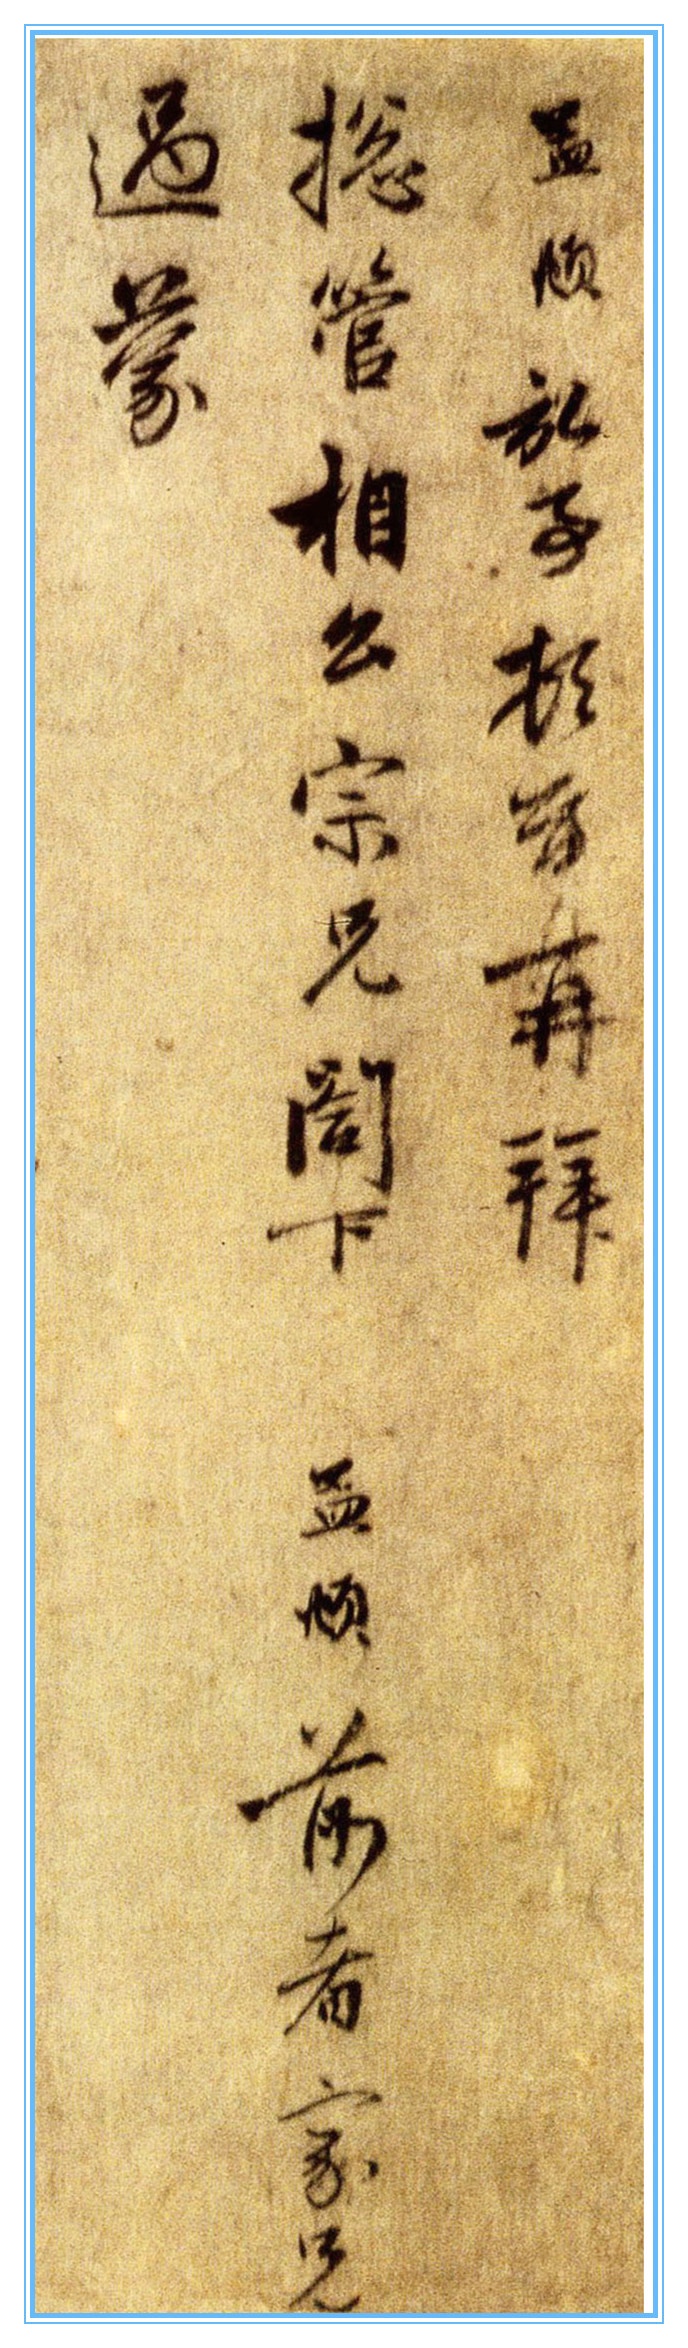 孟頫頓首再拜
總管相公宗兄閣下 孟頫前者家兄
過蒙